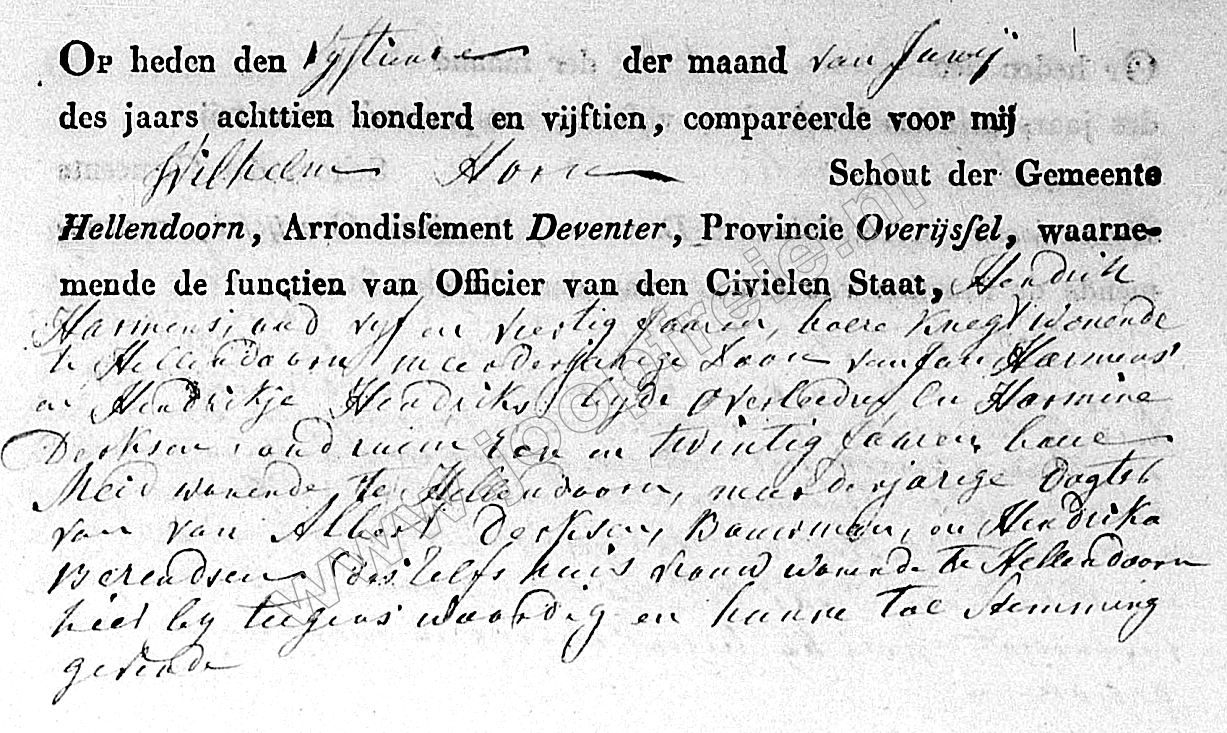 Op heden den vyftiende der maand van Juny
des jaars achttien honderd en vijftien, compareerde voor mij
Wilhelm Horn Schout der Gemeente
Hellendoorn, Arrondisſement Deventer, Provincie Overijsſel, waarne-
mende de functien van Officier van den Civielen Staat, Hendrik
Harmens, oud vyf en veertig Jaaren, boere Knegt wonende
te Hellendoorn, meerderjarige Zoon van Jan Harmens
en Hendrikje Hendriks, byde overleden, En Harmine
Derksen oud ruim Een en twintig Jaaren, boere
Meid wonende te Hellendoorn, meerderjarige Dogter
van van Albert Derksen, Bouwman, en Hendrika
Berendsen deszelfs huis vrouw wonende te Hellendoorn
hier by teegens woordig en hunne Toe stemming
gevende
www.jooptreie.nl